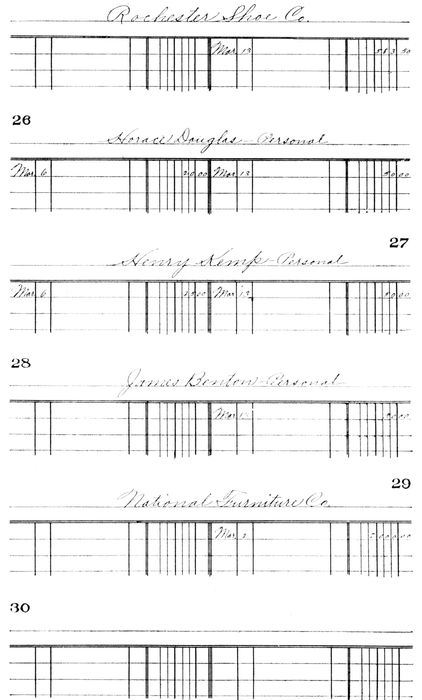 Rochester Shoe Co.
Mar. 13 583 50
26
Horace Douglas - Personal
Mar. 6 20 00 Mar. 13 50 00
27
Henry Kemp - Personal
Mar. 6 Mar. 13 50 00
28
James Benton - Personal
Mar. 13
29
National Furniture Co.
Mar.
30